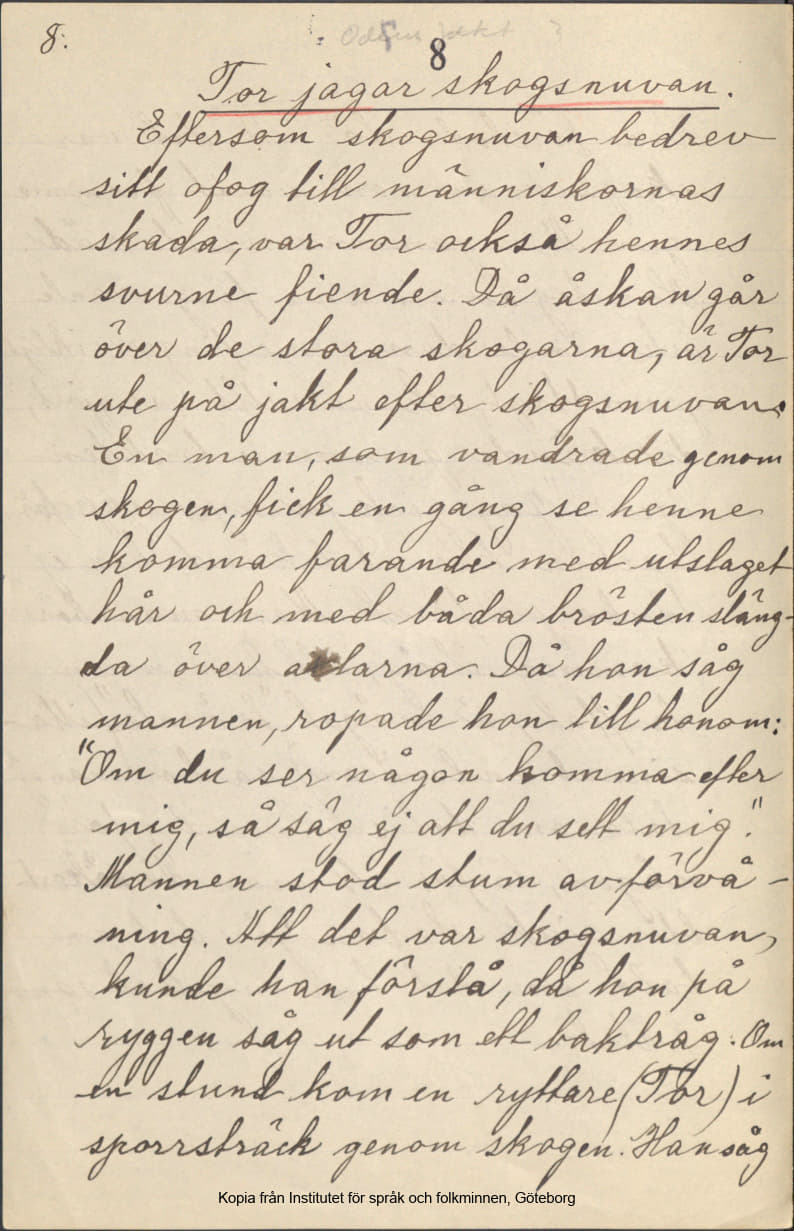 8.
8
Tor jagar skogsnuvan.
Eftersom skogsnuvan bedrev
sitt ofog till människornas
skada, var Tor också hennes
svurne fiende. Då åskan går
över de stora skogarna, är Tor
ute på jakt efter skogsnuvan.
En man, som vandrade genom
skogen, fick en gång se henne
komma farande med utslaget
hår och med båda brösten släng-
da över axlarna. Då hon såg
mannen, ropade hon till honom:
"Om du ser någon komma efter
mig, så säg ej att du sett mig."
Mannen stod stum av förvå-
ning. Att det var skogsnuvan,
kunde han förstå, då hon på
ryggen såg ut som ett baktråg. Om
en stund kom en ryttare (Tor) i
sporrsträck genom skogen. Han såg
Kopia från Institutet för språk och folkminnen, Göteborg